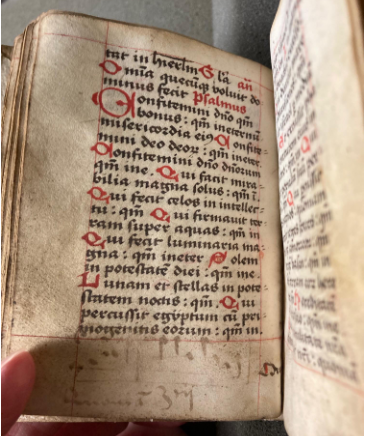 tat in hierlm Gl̄a an̄
Omia quecūqꝫ voluit do-
minus fecit Psalmus
Confitemini dn̄o qm̄
bonus : qm̄ ineternū
misericordia eiꝰ Confite-
mini deo deoꝝ : qm̄ ineter.
Confitemini dn̄o dn̄orum
qm̄ ine. Qui facit mira-
bilia magna solus : qm̄ ī.
Qui fecit celos in intellec-
tu : qm̄ Qui firmauit ter-
ram super aquas : qm̄ in
Qui fecit luminaria ma-
gna : qm̄ ineter Solem
in potestatē diei : qm̄ ine.
Lunam et stellas in pote-
statem noctis : qm̄. Qui
percussit egyptum cū pri
mogenitis eorum : qm̄ in.